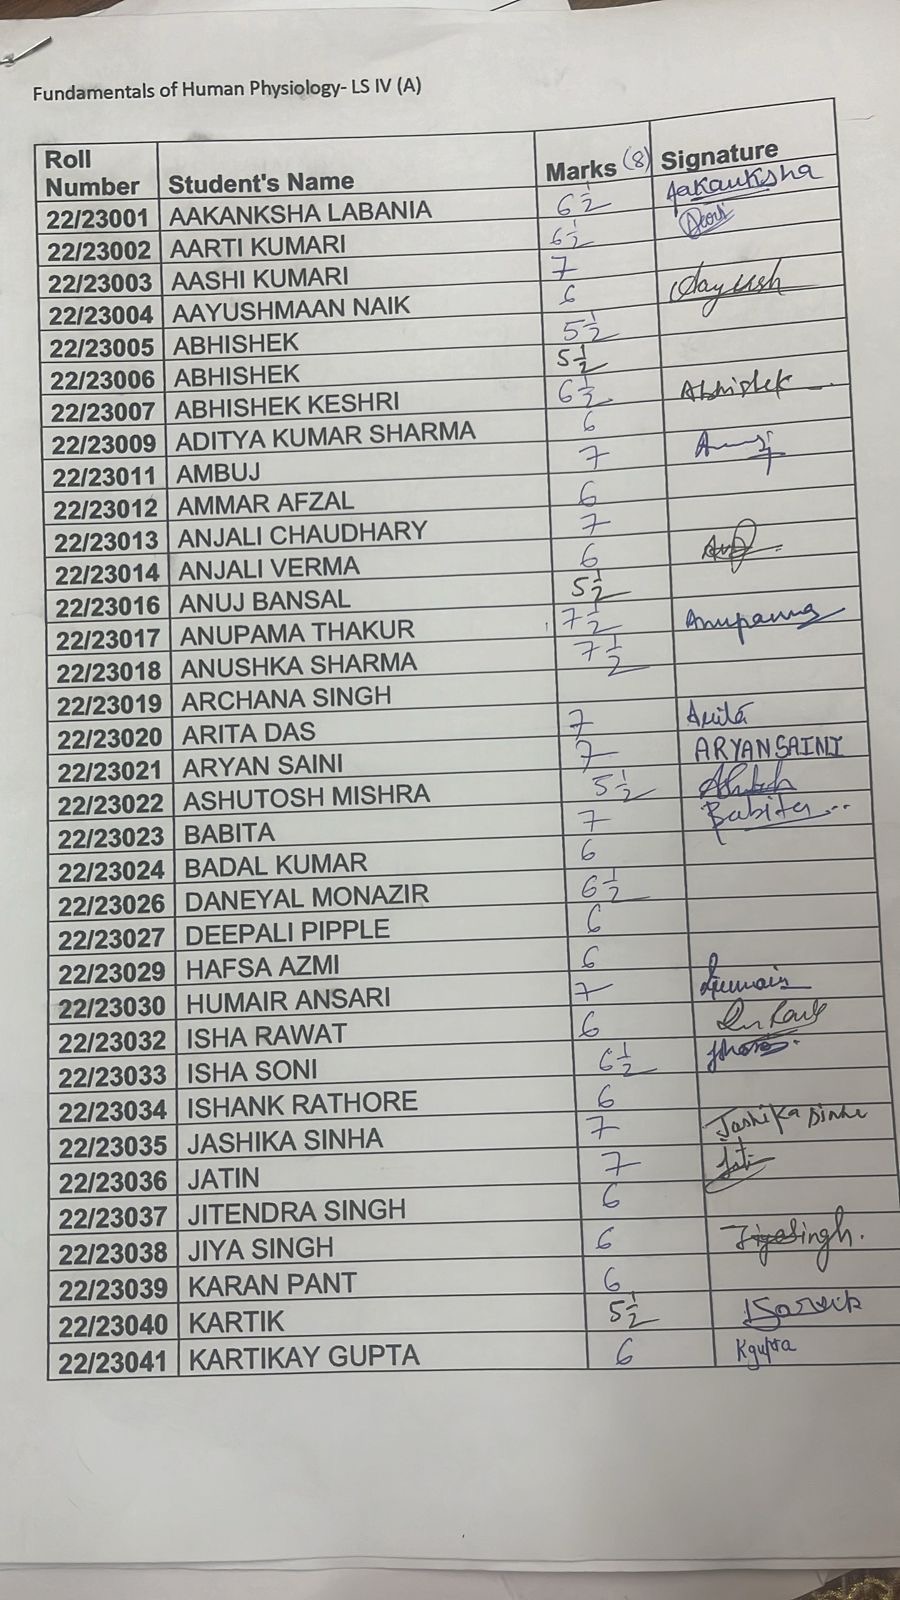 Fundamentals of Human Physiology- LS IV (A)
Roll Number Student's Name Marks (8) Signature
22/23001 AAKANKSHA LABANIA 6½ Aakanksha
22/23002 AARTI KUMARI 6½
22/23003 AASHI KUMARI 7
22/23004 AAYUSHMAAN NAIK 6 Aayush
22/23005 ABHISHEK 5½
22/23006 ABHISHEK 5½
22/23007 ABHISHEK KESHRI 6½ Abhishek
22/23009 ADITYA KUMAR SHARMA 6
22/23011 AMBUJ 7
22/23012 AMMAR AFZAL 6
22/23013 ANJALI CHAUDHARY 7
22/23014 ANJALI VERMA 6
22/23016 ANUJ BANSAL 5½
22/23017 ANUPAMA THAKUR 7½ Anupama
22/23018 ANUSHKA SHARMA 7½
22/23019 ARCHANA SINGH
22/23020 ARITA DAS 7 Arita
22/23021 ARYAN SAINI 7 ARYAN SAINI
22/23022 ASHUTOSH MISHRA 5½
22/23023 BABITA 7 Babita
22/23024 BADAL KUMAR 6
22/23026 DANEYAL MONAZIR 6½
22/23027 DEEPALI PIPPLE 6
22/23029 HAFSA AZMI 6
22/23030 HUMAIR ANSARI 7 Humair
22/23032 ISHA RAWAT 6
22/23033 ISHA SONI 6½
22/23034 ISHANK RATHORE 6
22/23035 JASHIKA SINHA 7 Jashika Sinha
22/23036 JATIN 7
22/23037 JITENDRA SINGH 6
22/23038 JIYA SINGH 6 Jiya Singh.
22/23039 KARAN PANT 6
22/23040 KARTIK 5½ Kartik
22/23041 KARTIKAY GUPTA 6 Kgupta